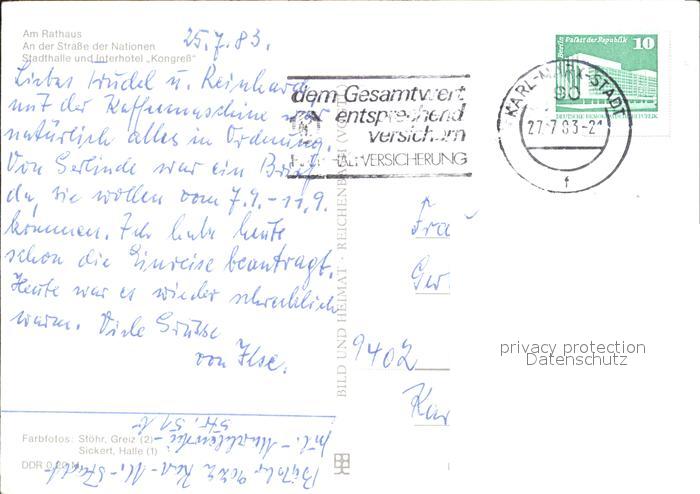 Am Rathaus
An der Straße der Nationen
Stadthalle und Interhotel „Kongreß“
25.7.83.
Liebes Trudel u. Reinhard
mit der Kaffeemaschine war
natürlich alles in Ordnung.
Von Gerlinde war ein Brief
da, sie wollen vom 7.9.-11.9.
kommen. Ich habe heute
schon die Einreise beantragt.
Heute war es wieder schrecklich
warm. Viele Grüsse
von Ilse.
dem Gesamtwert
entsprechend
versichern
VERSICHERUNG
KARL-MARX-STADT
90
27.7.83-21
f
Berlin Palast der Republik 10
DEUTSCHE DEMOKRATISCHE REPUBLIK
BILD UND HEIMAT · REICHENBACH (VOGTL)
Frau
Ger
9402
Kar
privacy protection
Datenschutz
Farbfotos: Stöhr, Greiz (2)
Sickert, Halle (1)
DDR 0,20 M
Str. 51
Stadt